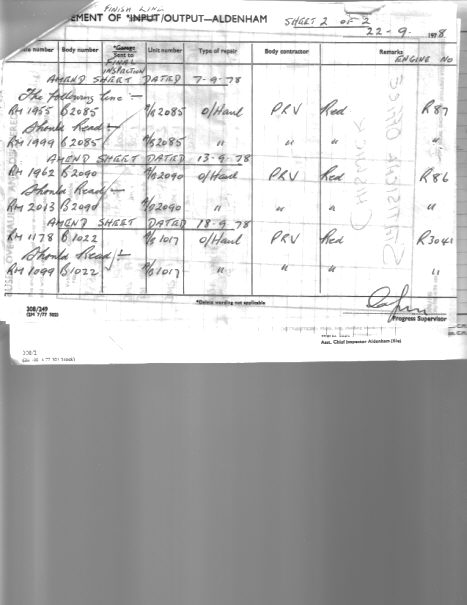 FINISH LINE
EMENT OF *INPUT/OUTPUT—ALDENHAM SHEET 2 OF 2
22-9- 1978
number Body number *Garage Sent to FINAL INSPECTION Unit number Type of repair Body contractor Remarks ENGINE NO
AMEND SHEET DATED 7-9-78
The following line :-
RM 1955 B2085 2085 O/Haul PRV Red R87
Should Read :-
RM 1999 B2085 2085 " " " "
AMEND SHEET DATED 13-9-78
RM 1962 B2090 2090 O/Haul PRV Red R86
Should Read :-
RM 2013 B2090 2090 " " " "
AMEND SHEET DATED 18-9-78
RM 1178 B1022 1017 O/Haul PRV Red R3041
Should Read :-
RM 1099 B1022 1017 " " " "
CHISWICK
STATISTICAL OFFICE
*Delete wording not applicable
308/249
Progress Supervisor
Asst. Chief Inspector Aldenham